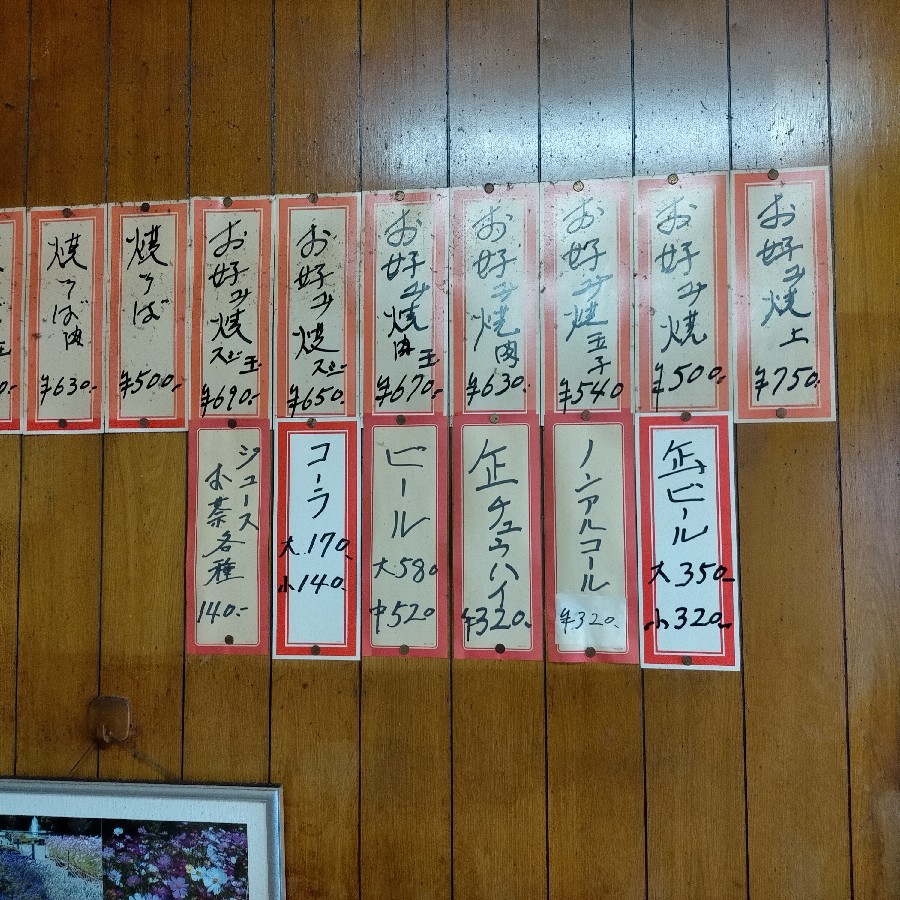 お好み焼上
¥750-
お好み焼
¥500-
お好み焼玉子
¥540
お好み焼肉
¥630-
お好み焼肉玉
¥670-
お好み焼スジ
¥650-
お好み焼スジ玉
¥690-
焼そば
¥500-
焼そば肉
¥630-
玉
缶ビール
大350-
小320-
ノンアルコール
¥320-
缶チュウハイ
¥320-
ビール
大580
中520
コーラ
大170
小140-
ジュース
お茶各種
140-